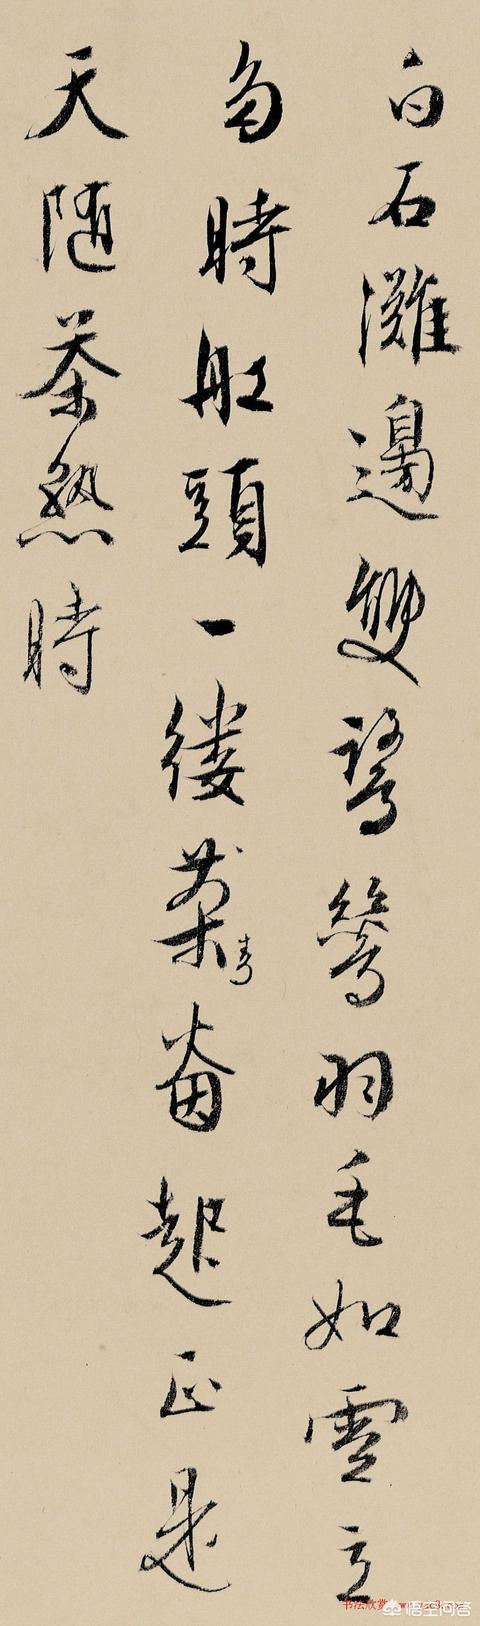 白石灘邊雙鷺鷥羽毛如雪立
多時舡頭一縷茶青烟起正是
天隨茶熟時
书法欣赏
悟空问答